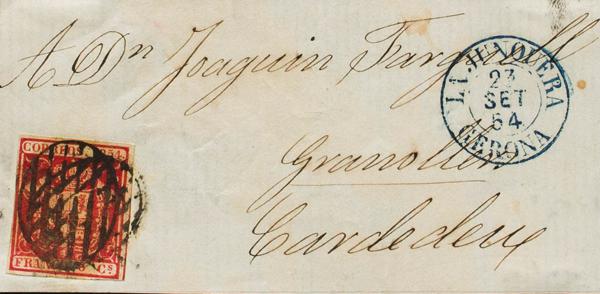 A Dn Joaquin Fargas
LA JUNQUERA
23
SET
54
GERONA
Granollers
Cardedeu
CORREOS 1854
FRANCO 6 Cs